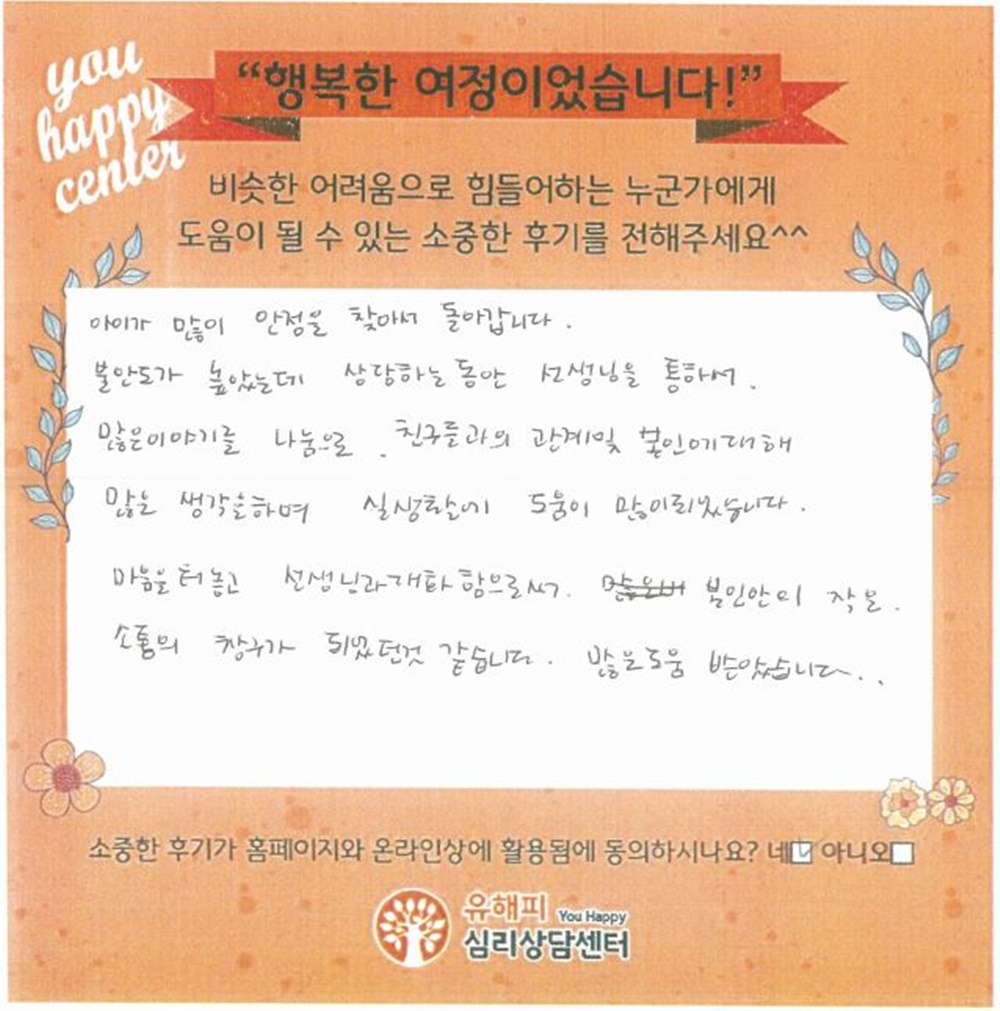 you
happy
center
“행복한 여정이었습니다!”
비슷한 어려움으로 힘들어하는 누군가에게
도움이 될 수 있는 소중한 후기를 전해주세요^^
아이가 많이 안정을 찾아서 돌아갑니다.
불안도가 높았는데 상담하는동안 선생님을 통하서.
많은이야기를 나눔으로. 친구들과의 관계및 본인에대해
많은 생각을하며 실생활에 도움이 많이되었습니다.
마음을터놓고 선생님과대화함으로써. 본인안의 작은.
소통의 창구가 되었던것 같습니다. 많은도움 받았습니다..
소중한 후기가 홈페이지와 온라인상에 활용됨에 동의하시나요? 네☑ 아니오☐
유해피 You Happy
심리상담센터